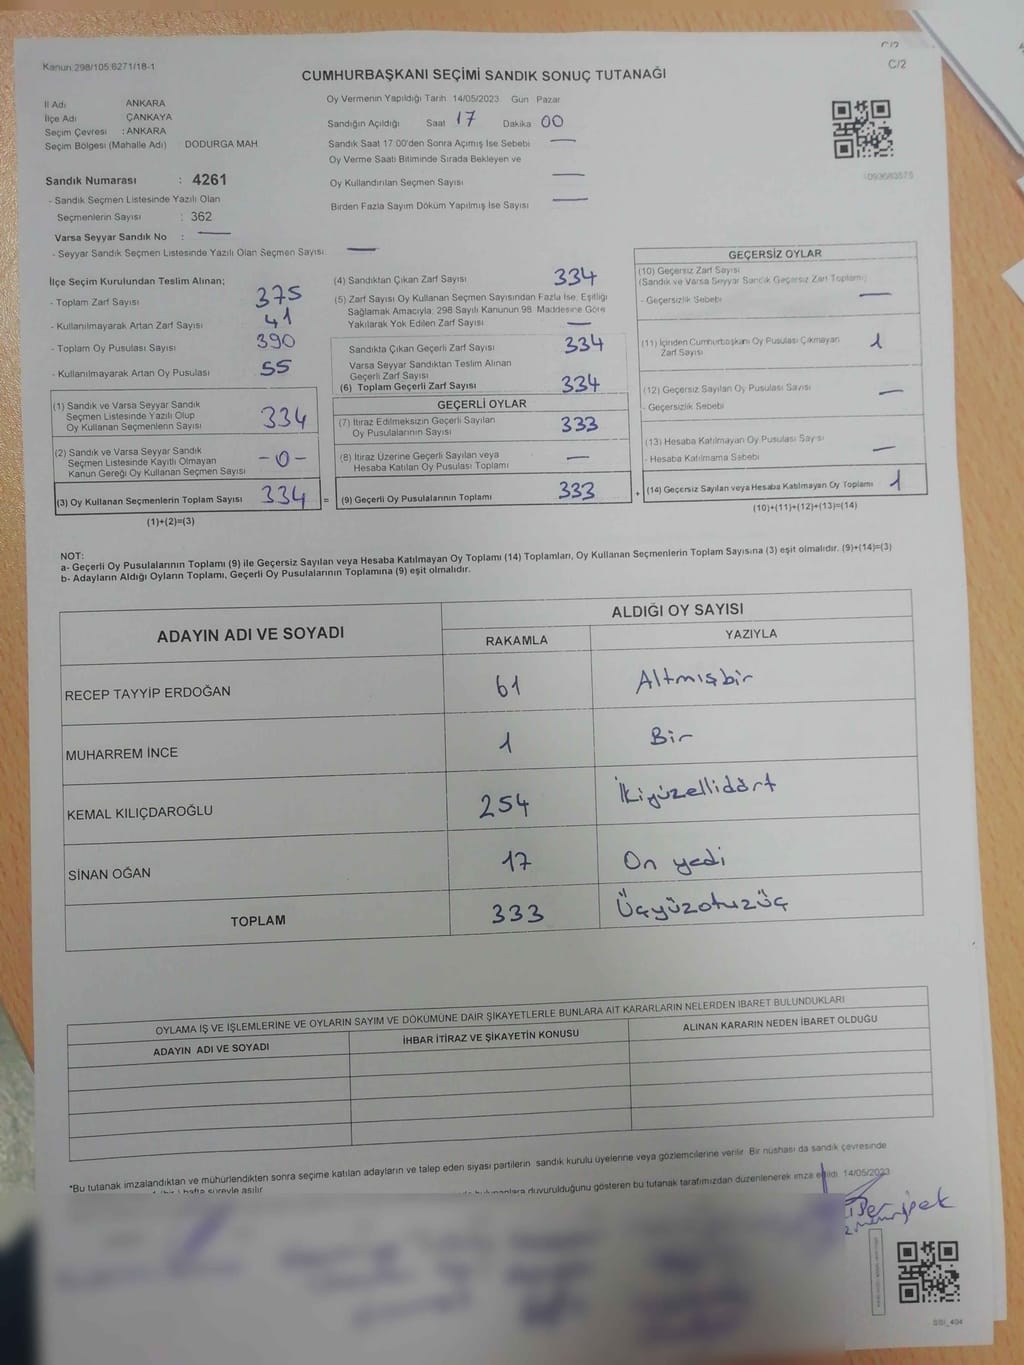 C/2
Kanun:298/105:6271/18-1
C/2
CUMHURBAŞKANI SEÇİMİ SANDIK SONUÇ TUTANAĞI
İl Adı ANKARA
İlçe Adı ÇANKAYA
Seçim Çevresi : ANKARA
Seçim Bölgesi (Mahalle Adı) DODURGA MAH.
Oy Vermenin Yapıldığı Tarih 14/05/2023 Gün Pazar
Sandığın Açıldığı Saat 17 Dakika 00
Sandık Saat 17:00'den Sonra Açımış İse Sebebi —
Oy Verme Saati Bitiminde Sırada Bekleyen ve
Oy Kullandırılan Seçmen Sayısı —
Birden Fazla Sayım Döküm Yapılmış İse Sayısı —
Sandık Numarası : 4261
- Sandık Seçmen Listesinde Yazılı Olan
Seçmenlerin Sayısı : 362
Varsa Seyyar Sandık No : —
- Seyyar Sandık Seçmen Listesinde Yazılı Olan Seçmen Sayısı: —
İlçe Seçim Kurulundan Teslim Alınan;
- Toplam Zarf Sayısı 375
- Kullanılmayarak Artan Zarf Sayısı 41
- Toplam Oy Pusulası Sayısı 390
- Kullanılmayarak Artan Oy Pusulası 55
(1) Sandık ve Varsa Seyyar Sandık
Seçmen Listesinde Yazılı Olup
Oy Kullanan Seçmenlerin Sayısı 334
(2) Sandık ve Varsa Seyyar Sandık
Seçmen Listesinde Kayıtlı Olmayan
Kanun Gereği Oy Kullanan Seçmen Sayısı -0-
(3) Oy Kullanan Seçmenlerin Toplam Sayısı 334 =
(1)+(2)=(3)
(4) Sandıktan Çıkan Zarf Sayısı 334
(5) Zarf Sayısı Oy Kullanan Seçmen Sayısından Fazla İse, Eşitliği
Sağlamak Amacıyla; 298 Sayılı Kanunun 98. Maddesine Göre
Yakılarak Yok Edilen Zarf Sayısı —
Sandıkta Çıkan Geçerli Zarf Sayısı 334
Varsa Seyyar Sandıktan Teslim Alınan
Geçerli Zarf Sayısı
(6) Toplam Geçerli Zarf Sayısı 334
GEÇERLİ OYLAR
(7) İtiraz Edilmeksizin Geçerli Sayılan
Oy Pusulalarının Sayısı 333
(8) İtiraz Üzerine Geçerli Sayılan veya
Hesaba Katılan Oy Pusulası Toplamı —
(9) Geçerli Oy Pusulalarının Toplamı 333 +
GEÇERSİZ OYLAR
(10) Geçersiz Zarf Sayısı
(Sandık ve Varsa Seyyar Sandık Geçersiz Zarf Toplamı)
- Geçersizlik Sebebi —
(11) İçinden Cumhurbaşkanı Oy Pusulası Çıkmayan
Zarf Sayısı 1
(12) Geçersiz Sayılan Oy Pusulası Sayısı —
- Geçersizlik Sebebi
(13) Hesaba Katılmayan Oy Pusulası Sayısı —
- Hesaba Katılmama Sebebi
(14) Geçersiz Sayılan veya Hesaba Katılmayan Oy Toplamı 1
(10)+(11)+(12)+(13)=(14)
NOT:
a- Geçerli Oy Pusulalarının Toplamı (9) ile Geçersiz Sayılan veya Hesaba Katılmayan Oy Toplamı (14) Toplamları, Oy Kullanan Seçmenlerin Toplam Sayısına (3) eşit olmalıdır. (9)+(14)=(3)
b- Adayların Aldığı Oyların Toplamı, Geçerli Oy Pusulalarının Toplamına (9) eşit olmalıdır.
ADAYIN ADI VE SOYADI
ALDIĞI OY SAYISI
RAKAMLA YAZIYLA
RECEP TAYYİP ERDOĞAN 61 Altmışbir
MUHARREM İNCE 1 Bir
KEMAL KILIÇDAROĞLU 254 İkiyüzellidört
SİNAN OĞAN 17 On yedi
TOPLAM 333 Üçyüzotuzüç
OYLAMA İŞ VE İŞLEMLERİNE VE OYLARIN SAYIM VE DÖKÜMÜNE DAİR ŞİKAYETLERLE BUNLARA AİT KARARLARIN NELERDEN İBARET BULUNDUKLARI
ADAYIN ADI VE SOYADI İHBAR İTİRAZ VE ŞİKAYETİN KONUSU ALINAN KARARIN NEDEN İBARET OLDUĞU
*Bu tutanak imzalandıktan ve mühürlendikten sonra seçime katılan adayların ve talep eden siyasi partilerin sandık kurulu üyelerine veya gözlemcilerine verilir. Bir nüshası da sandık çevresinde
hafta süreyle asılır.
duyurulduğunu gösteren bu tutanak tarafımızdan düzenlenerek imza edildi. 14/05/2023
SSI_404